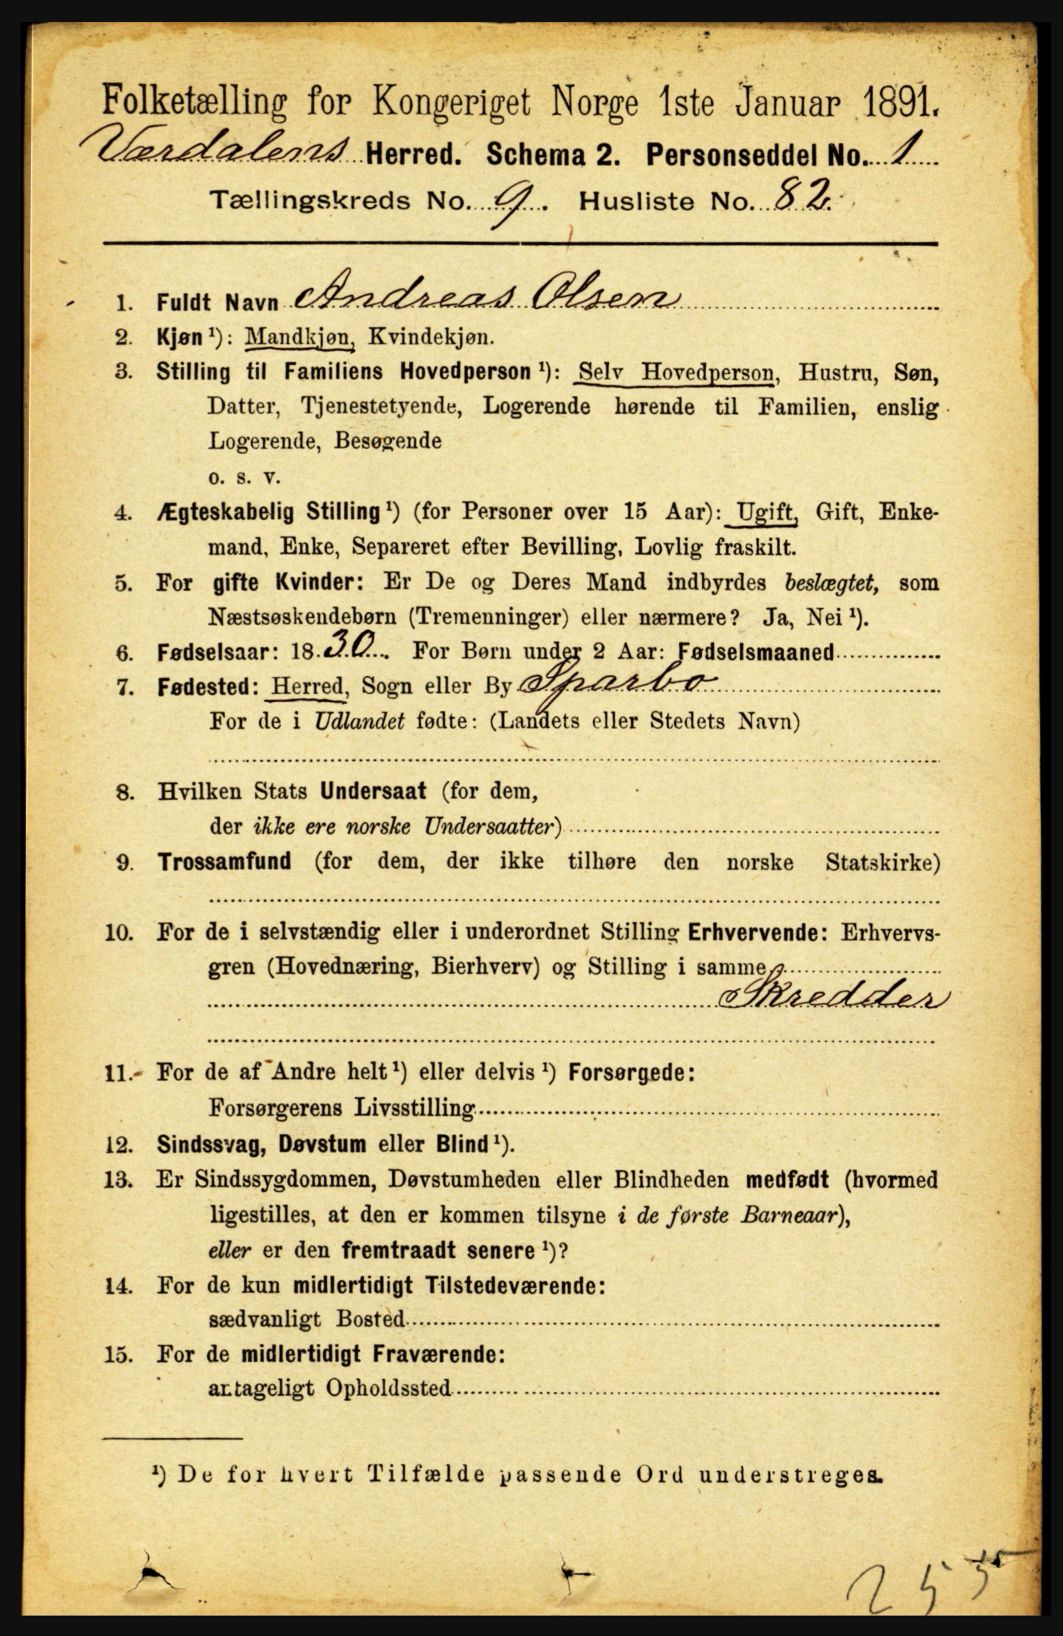 Folketælling for Kongeriget Norge 1ste Januar 1891.
Værdalens Herred. Schema 2. Personseddel No. 1
Tællingskreds No. 9. Husliste No. 82.
1. Fuldt Navn Andreas Olsen
2. Kjøn ¹): Mandkjøn, Kvindekjøn.
3. Stilling til Familiens Hovedperson ¹): Selv Hovedperson, Hustru, Søn,
Datter, Tjenestetyende, Logerende hørende til Familien, enslig
Logerende, Besøgende
o. s. v.
4. Ægteskabelig Stilling ¹) (for Personer over 15 Aar): Ugift, Gift, Enke-
mand, Enke, Separeret efter Bevilling, Lovlig fraskilt.
5. For gifte Kvinder: Er De og Deres Mand indbyrdes beslægtet, som
Næstsøskendebørn (Tremenninger) eller nærmere? Ja, Nei ¹).
6. Fødselsaar: 1830. For Børn under 2 Aar: Fødselsmaaned
7. Fødested: Herred, Sogn eller By Sparbo
For de i Udlandet fødte: (Landets eller Stedets Navn)
8. Hvilken Stats Undersaat (for dem,
der ikke ere norske Undersaatter)
9. Trossamfund (for dem, der ikke tilhøre den norske Statskirke)
10. For de i selvstændig eller i underordnet Stilling Erhvervende: Erhvervs-
gren (Hovednæring, Bierhverv) og Stilling i samme
Skredder
11. For de af Andre helt ¹) eller delvis ¹) Forsørgede:
Forsørgerens Livsstilling
12. Sindssvag, Døvstum eller Blind ¹).
13. Er Sindssygdommen, Døvstumheden eller Blindheden medfødt (hvormed
ligestilles, at den er kommen tilsyne i de første Barneaar),
eller er den fremtraadt senere ¹)?
14. For de kun midlertidigt Tilstedeværende:
sædvanligt Bosted
15. For de midlertidigt Fraværende:
antageligt Opholdssted
¹) De for hvert Tilfælde passende Ord understreges.
255